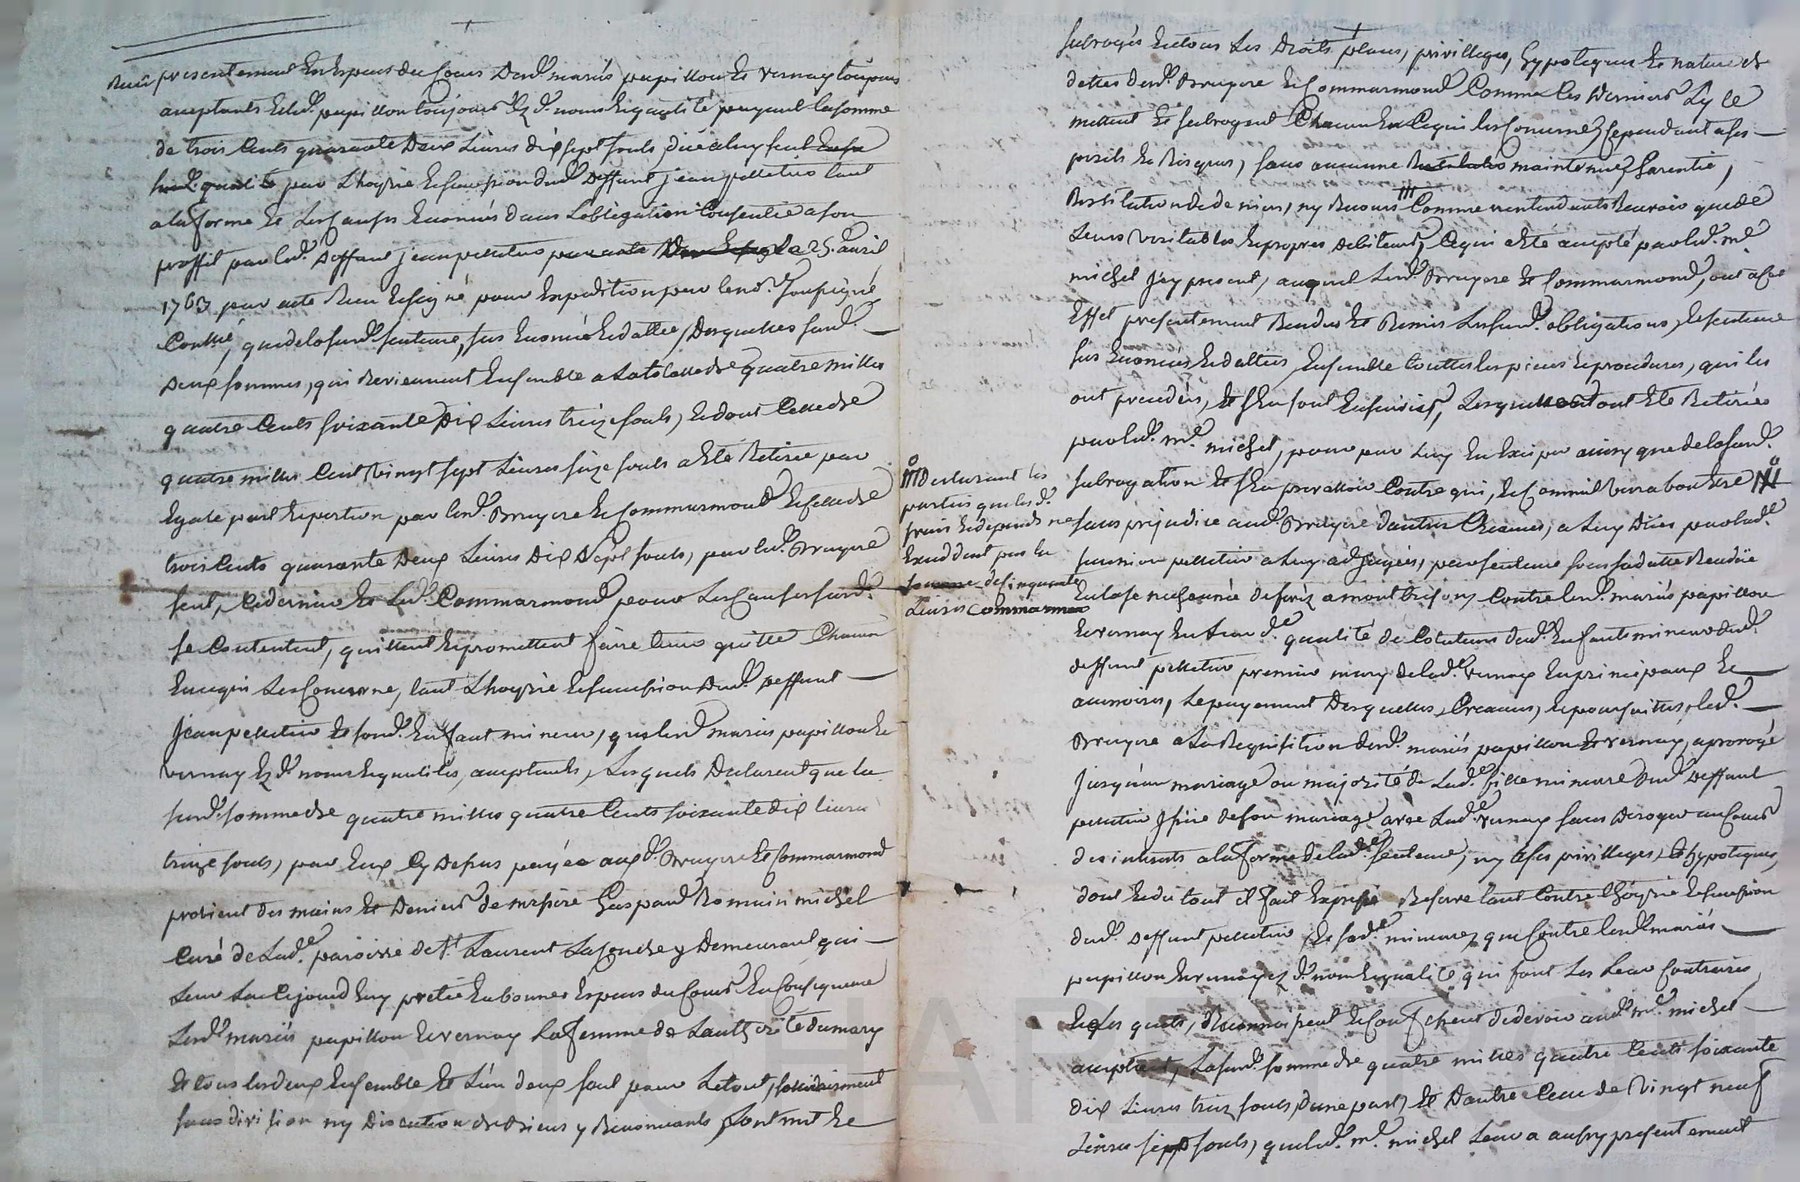 presentement En Especes du Cours Desd. mariés papillon Et vernay toujours
acceptants Et led. papillon toujours Ezd. noms Et qualité payant la somme
de trois Cents quarante Deux Livres dix sept souls, düe a luy seul
qualité par L'hoyrie Et succession dud. Deffunt jean pelletier tant
a la forme Et Les Causes Enoncées dans L'obligation Consentie a son
proffit par led. Deffunt jean pelletier le 25. avril
1763 par acte Reçu Et signé pour Expedition par le nore. soussigné
Controllé, que de la susd. sentence, sus Enoncée Et dattée, Desquelles susd.
Deux sommes, qui Reviennent Ensemble a La totalle de quatre milles
quatre Cents soixante Dix Livres treize souls, Et dont Celle de
quatre milles Cent Vingt sept Livres seize souls a Eté Retirée par
Egale part Et portion par lesd. Bruyere Et Commarmond Et celle de
trois Cents quarante Deux Livres Dix Sept souls, par led. Bruyere
seul, Ce dernier Et Led. Commarmond pour Les Causes susd.
se Contentent, quittent Et promettent faire tenir quitte Chacun
En ce qui Les Concerne, tant L'hoyrie Et succession Dud. Deffunt
Jean pelletier Et sond. Enfant mineur, que lesd. mariés papillon Et
vernay Ezd. noms Et qualités, acceptants, Lesquels Declarent que la
susd. somme de quatre milles quatre Cents soixante dix livres
treize souls, par Eux Cy Dessus payée auxd. Bruyere Et Commarmond
provient des mains Et Deniers de messire Gaspard Romain michel
Curé de Lad. paroisse de St. Laurent La Conche y Demeurant qui
Leur La Cejourd'huy pretée En bonnes Especes du Cours En Consequence
Lesd. mariés papillon Et vernay La femme de L'authorité du mary
Et tous les deux Ensemble Et L'un d'eux seul pour Le tout, solidairement
sans division ny Discution de Biens y Renonceants, L'ont mit Et
subrogés En tous Les Droits places, privilleges, hypoteques Et nature de
dettes desd. Bruyere Et Commarmond Comme Ces Derniers L'y
mettent Et subrogent Chacun En Ce qui les Concerne, Cependant a ses
perils Et Risques, sans aucunne maintenue, Garentie,
Restitution de deniers, ny Recours Comme n'entendants Recevoir que de
Leurs veritables Et propres debiteurs, Ce qui a Eté accepté par led. me.
michel Icy present, auquel Lesd. Bruyere Et Commarmond, ont a Cet
Effet presentement Rendus Et Remis Les susd. obligations, Et sentence
sus Enoncées Et dattées, Ensemble touttes les pieces Et procedures, qui les
ont precedés, Et s'en sont Ensuivis, Lesquelles ont Eté Retirées
par led. me. michel, pour par Luy En Exciper ainsy que de la susd.
subrogation Et s'en prevalloir Contre qui, Et Comme il verra bon Etre
III Declarant les
parties que lesd.
frais Et depends ne
Exceddent pas la
somme de Cinquante
Livres Commarmond
sans prejudice aud. Bruyere d'autres Creances, a Luy Dües par led.
pelletier a Luy adjugées, par sentence sous sa datte Rendüe
En la senechaussée de forez a montbrison, Contre lesd. mariés papillon
Et vernay En leurd. qualité de Cotuteurs desd. Enfants mineurs dud.
deffunt pelletier premier mary de lad. vernay En principaux Et
accessoires, Le payement Desquelles, Creances, Et poursuittes, led.
Bruyere a La Requisition desd. mariés papillon Et vernay, a prorogé
Jusqu'au mariage ou majorité de Lad. fille mineure dud. Deffunt
pelletier Issüe de son mariage avec Lad. vernay sans Deroger au Cours
des interets a la forme de lad. sentence, ny a ses privilleges, Et hypoteques,
dont Et du tout il fait Expresse Reserve tant Contre L'hoyrie Et succession
dud. Deffunt pelletier, Et sad. mineure, que Contre lesd. mariés
papillon Et vernay Ezd. noms Et qualité qui font Les Leur Contraires,
Lesquels, Reconnoissent Et Confessent de devoir aud. me. michel
acceptant, La susd. somme de quatre milles quatre Cents soixante
dix Livres treize souls, d'une part, Et D'autre Celle de Vingt neuf
Livres sept souls, que led. me. michel Leur a aussy presentement